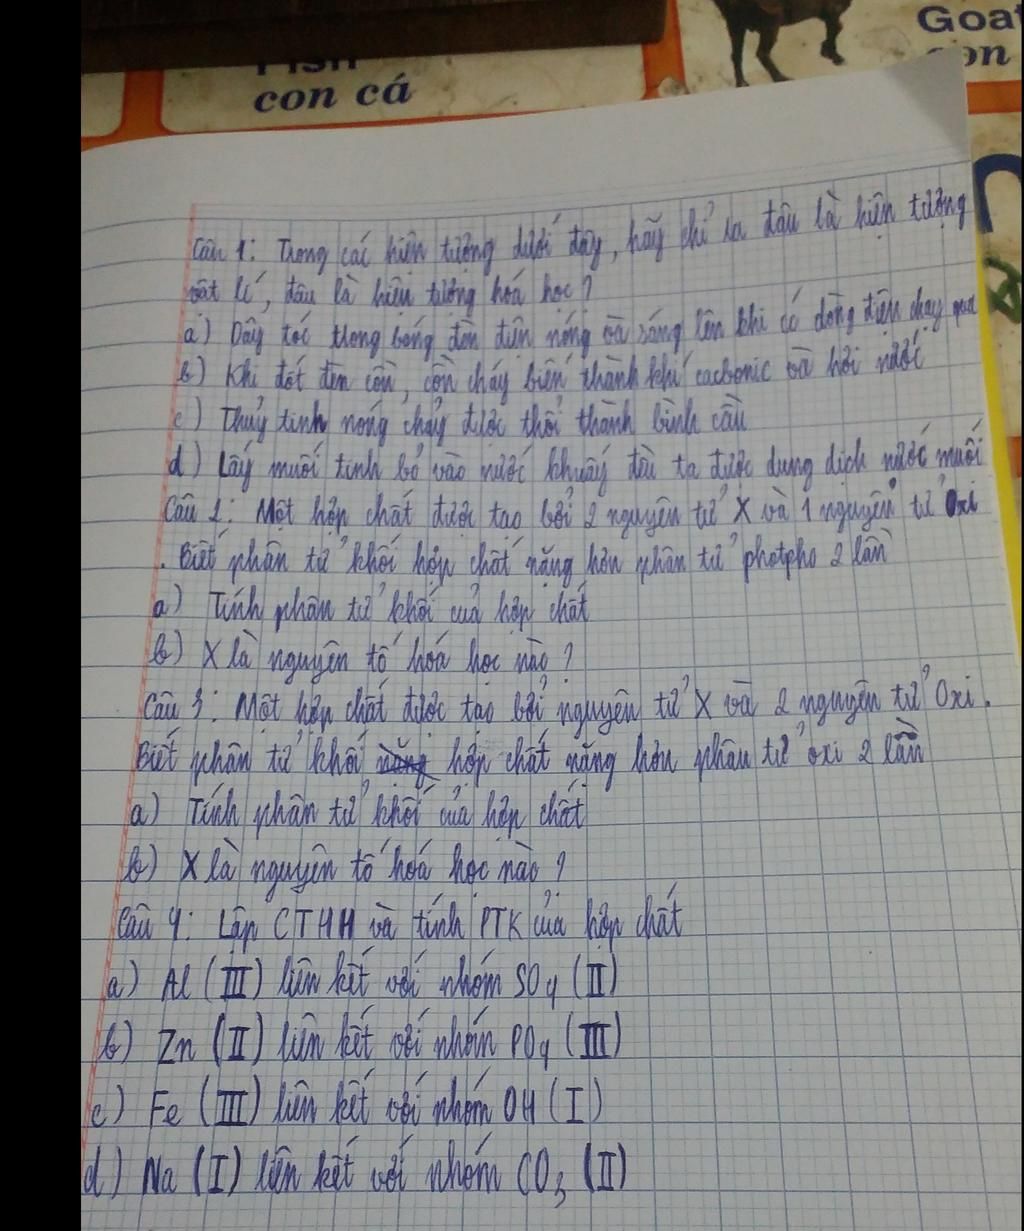 Fish
con cá
Goat
con
Câu 1: Trong các hiện tượng dưới đây, hãy chỉ ra đâu là hiện tượng
vật lí, đâu là hiện tượng hoá học?
a) Dây tóc trong bóng đèn điện nóng và sáng lên khi có dòng điện chạy qua
b) Khi đốt đèn cồn, cồn cháy biến thành khí cacbonic và hơi nước
c) Thuỷ tinh nóng chảy được thổi thành bình cầu
d) Lấy muối tinh bỏ vào nước khuấy đều ta được dung dịch nước muối
Câu 2: Một hợp chất được tạo bởi 2 nguyên tử X và 1 nguyên tử Oxi
. Biết phân tử khối hợp chất nặng hơn phân tử photpho 2 lần
a) Tính phân tử khối của hợp chất
b) X là nguyên tố hoá học nào?
Câu 3: Một hợp chất được tạo bởi nguyên tử X và 2 nguyên tử Oxi.
Biết phân tử khối hợp chất nặng hơn phân tử oxi 2 lần
a) Tính phân tử khối của hợp chất
b) X là nguyên tố hoá học nào?
Câu 4: Lập CTHH và tính PTK của hợp chất
a) Al (III) liên kết với nhóm SO4 (II)
b) Zn (II) liên kết với nhóm PO4 (III)
c) Fe (III) liên kết với nhóm OH (I)
d) Na (I) liên kết với nhóm CO3 (II)